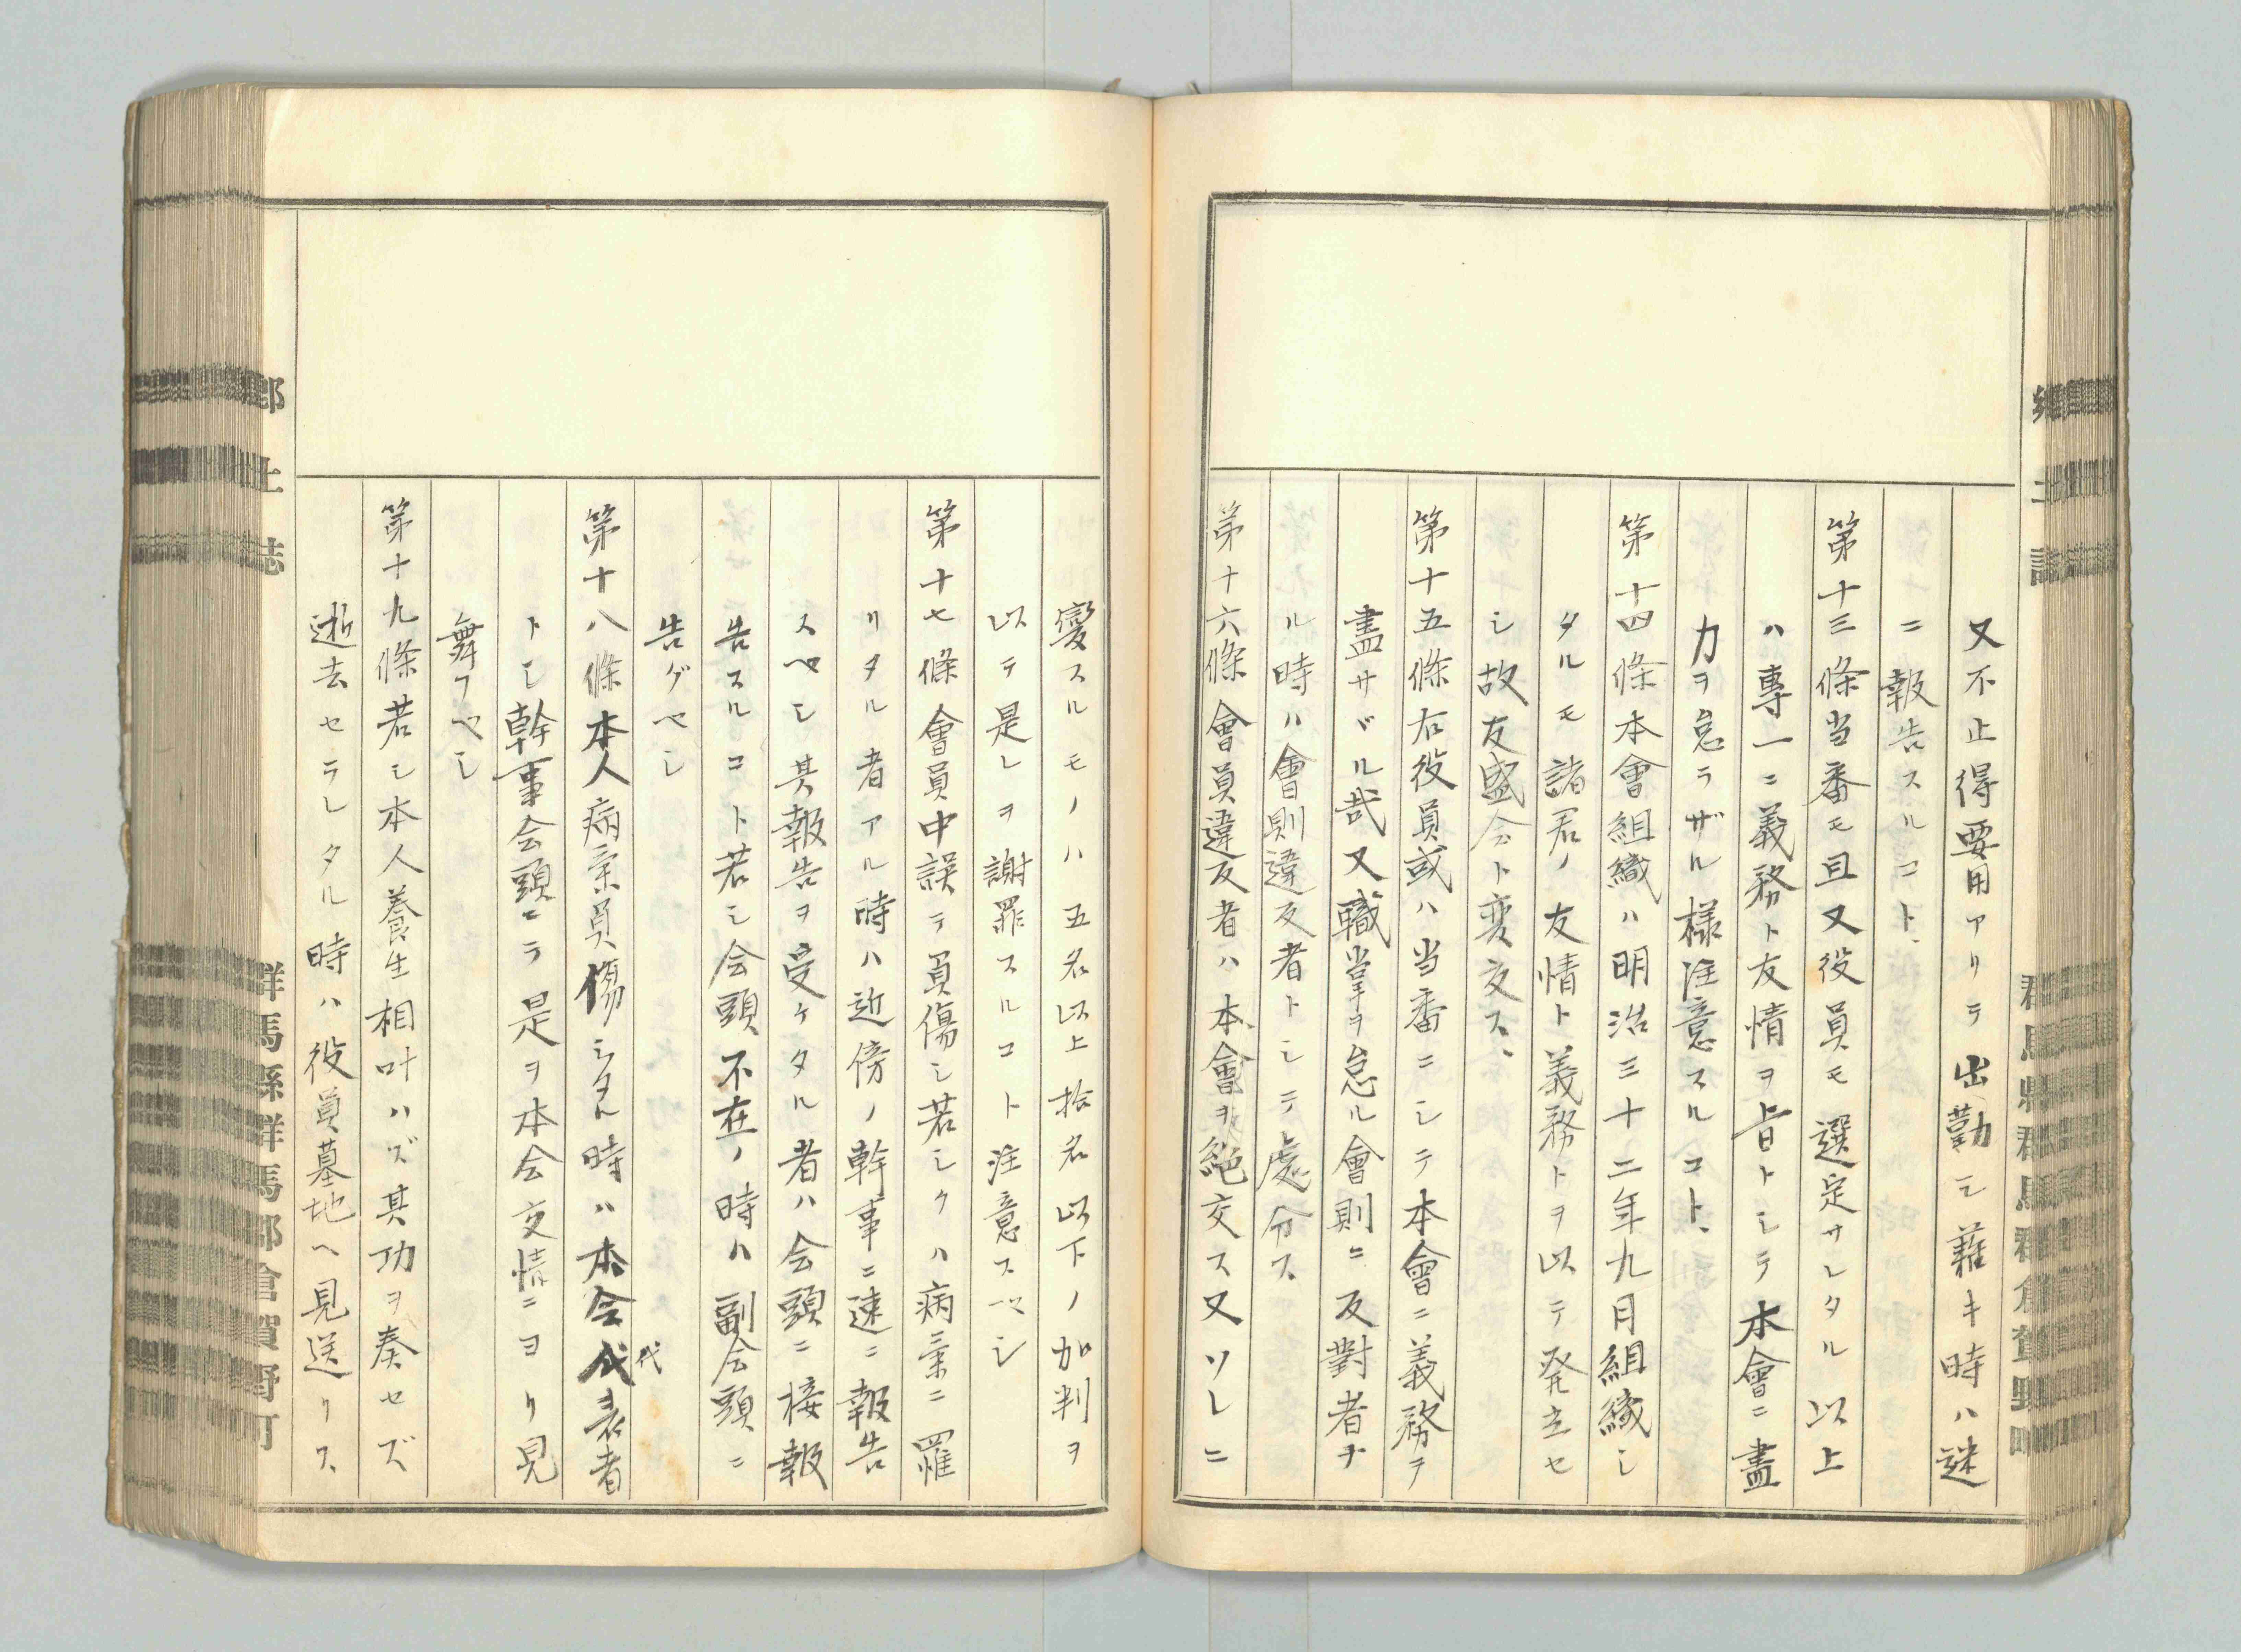 郷土誌
群馬縣群馬郡倉賀野町
又不止得要用アリテ出勤シ難キ時ハ謎
ニ報告スルコト、
第十三條当番モ且又役員モ選定サレタル以上
ハ專一ニ義務ト友情ヲ旨トシテ本會ニ盡
力ヲ怠ラザル様注意スルコト、
第十四條本會組織ハ明治三十二年九月組織シ
タルモ諸君ノ友情ト義務トヲ以テ発立セ
シ故友盛会ト変交ス、
第十五條右役員或ハ当番ニシテ本會ニ義務ヲ
盡サヾル哉又職掌ヲ怠ル會則ニ反對者ナ
ル時ハ會則違反者トシテ處分ス
第十六條會員違反者ハ本會ヲ絶交ス又ソレニ
變スルモノハ五名以上拾名以下ノ加判ヲ
以テ是レヲ謝罪スルコト注意スベシ
第十七條會員中誤テ員傷シ若シクハ病氣ニ罹
リタル者アル時ハ近傍ノ幹事ニ速ニ報告
スベシ其報告ヲ受ケタル者ハ会頭ニ接報
告スルコト若シ会頭不在ノ時ハ副会頭ニ
告ゲベシ
第十八條本人病氣員傷シタル時ハ本会代表者
代
トシ幹事会頭ニテ是ヲ本会交情ニヨリ見
舞フベシ
第十九條若シ本人養生相叶ハズ其功ヲ奏セズ
逝去セラレタル時ハ役員墓地ヘ見送リス、
郷土誌
群馬縣群馬郡倉賀野町